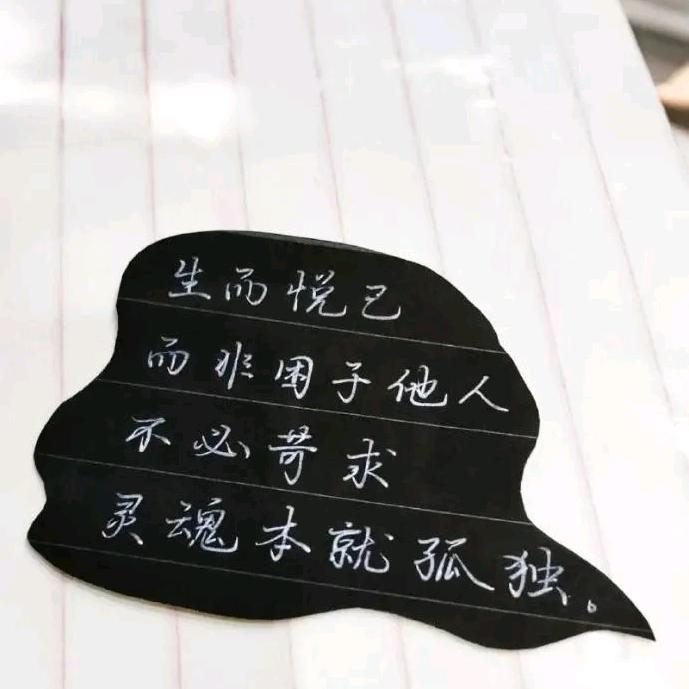 生而悦己
而非困于他人
不必苛求
灵魂本就孤独。